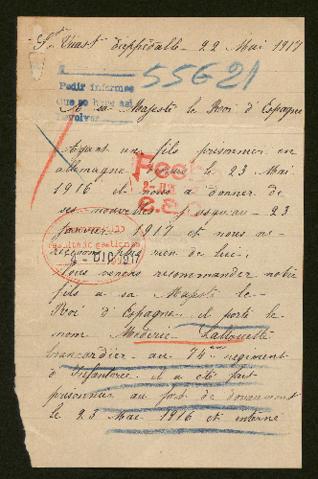 St Vaast Dieppedalle - 22 Mai 1917
55621
Pedir informes
que se hure asi
devolver
A sa Majesté le Roi d'Espagne
Ayant un fils prisonnier en
allemagne depuis le 23 Mai
1916 et nous a donner de
ses nouvelles jusqu'au - 23
janvier 1917 et nous ne
recevons plus rien de lui.
2 - DIC 1917
Nous venons recommander notre
fils a sa Majesté le
Roi d'Espagne il porte le
nom Mederic Lallouette
brancardier au 74eme regiment
d'Infanterie et a été fait
prisonnier au fort de douaumont
le 23 Mai 1916 et interné